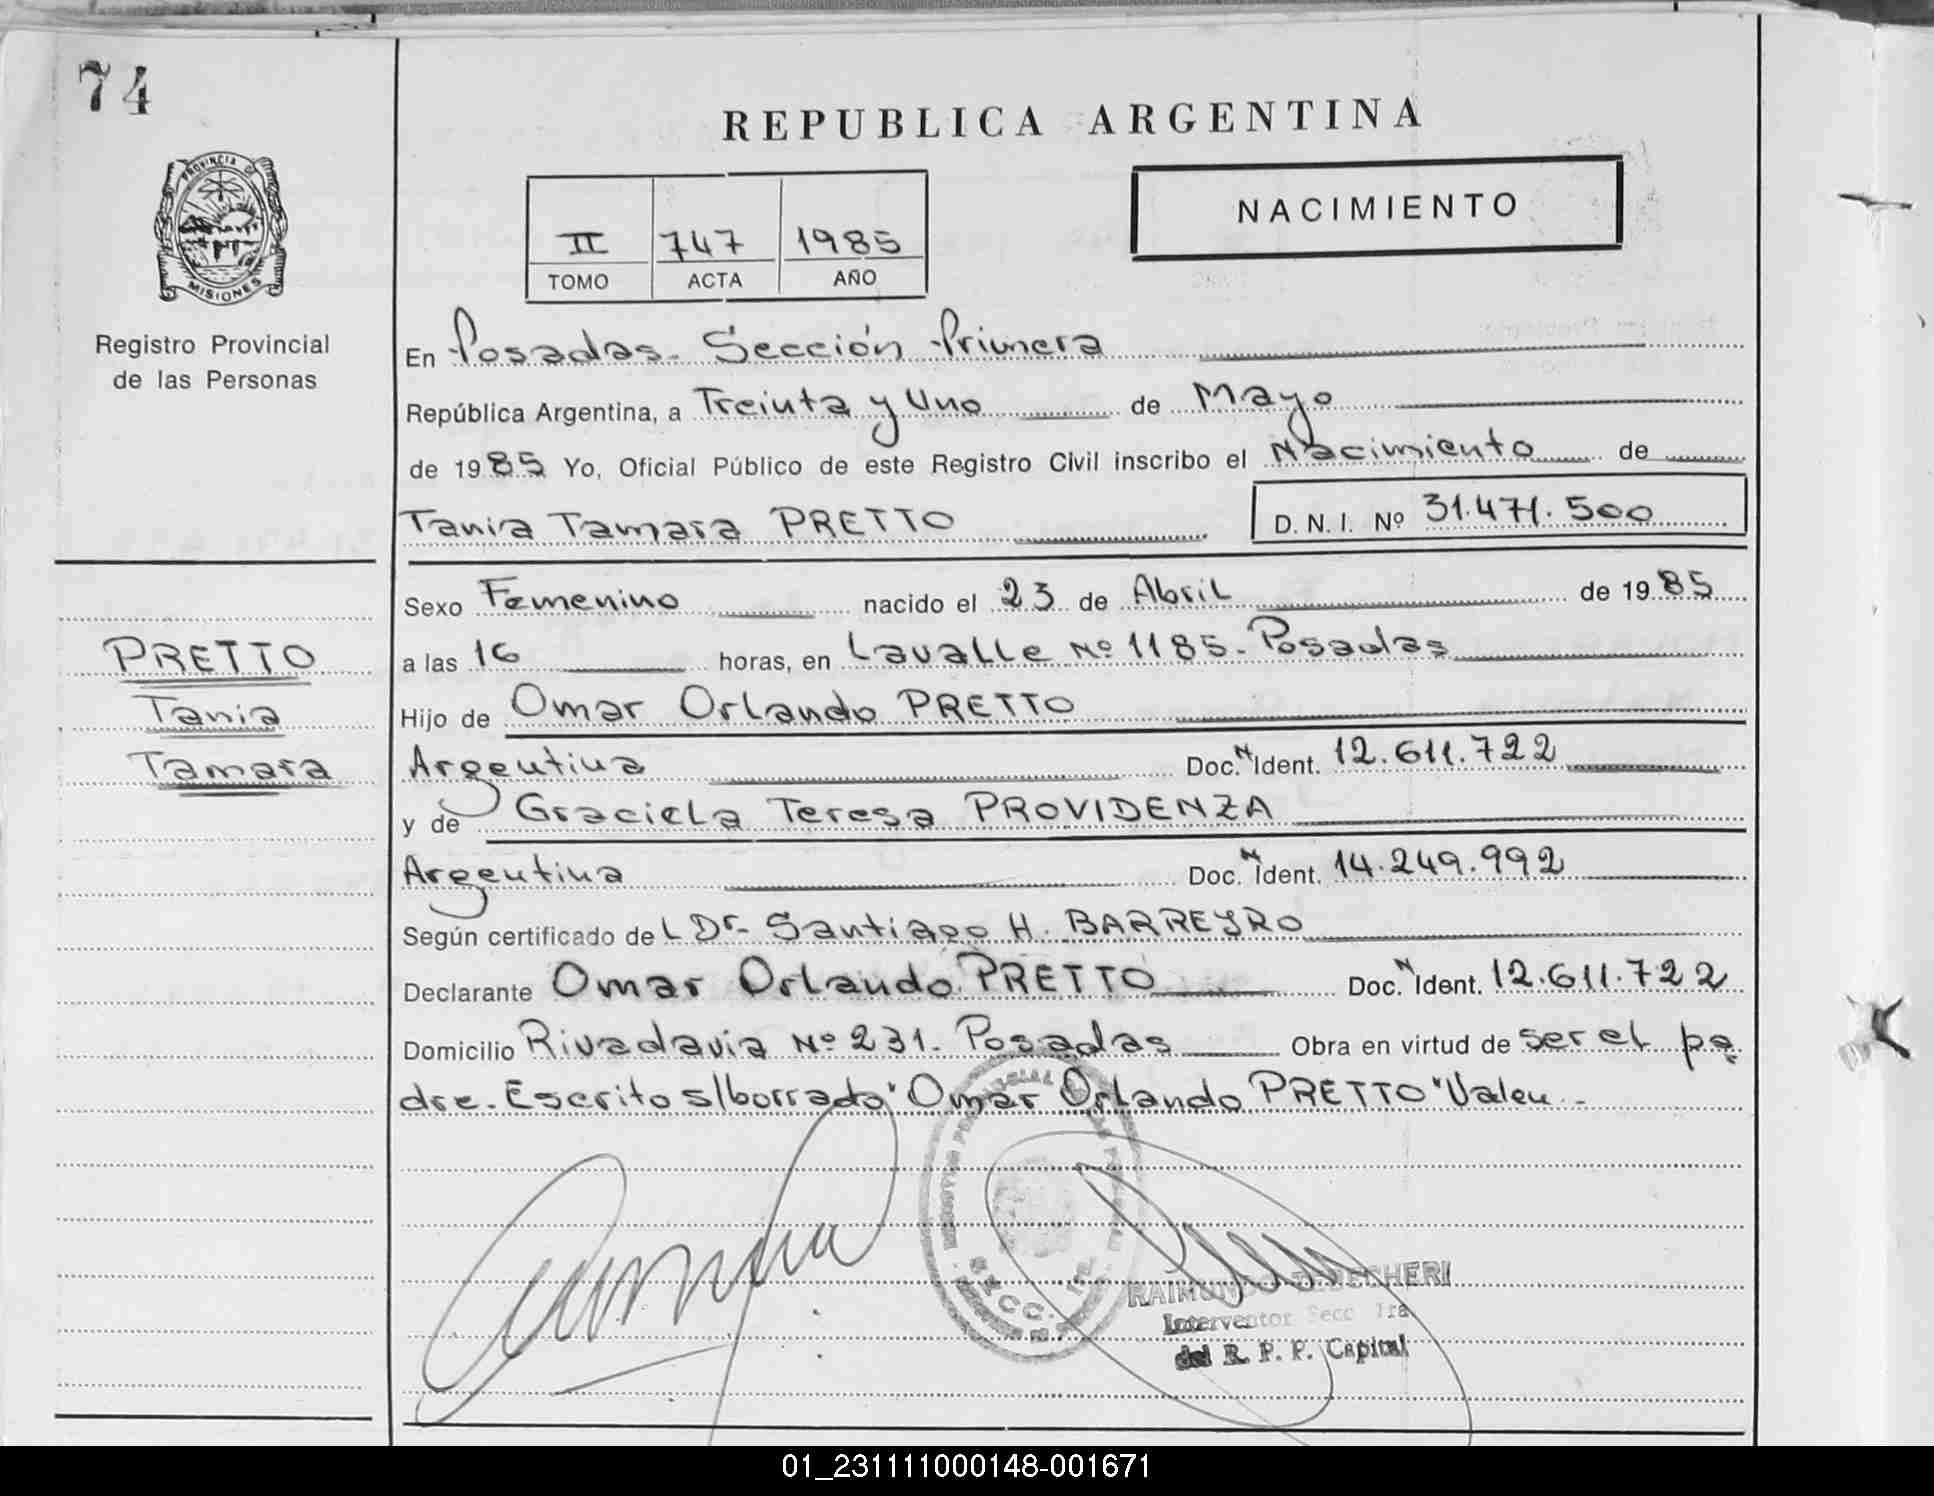 74
REPUBLICA ARGENTINA
NACIMIENTO
PROVINCIA DE
MISIONES
II 747 1985
TOMO ACTA AÑO
Registro Provincial
de las Personas
En Posadas. Sección Primera
República Argentina, a Treinta y Uno de Mayo
de 1985 Yo, Oficial Público de este Registro Civil inscribo el Nacimiento de
Tania Tamara PRETTO D.N.I. Nº 31.471.500
Sexo Femenino nacido el 23 de Abril de 1985
PRETTO
Tania
Tamara
a las 16 horas, en Lavalle Nº 1185. Posadas
Hijo de Omar Orlando PRETTO
Argentina Doc. N Ident. 12.611.722
y de Graciela Teresa PROVIDENZA
Argentina Doc. N Ident. 14.249.992
Según certificado del Dr. Santiago H. BARREYRO
Declarante Omar Orlando PRETTO Doc. N Ident. 12.611.722
Domicilio Rivadavia Nº 231. Posadas Obra en virtud de ser el pa
dre. Escrito s/borrado "Omar Orlando PRETTO" Valen.-
SECC. 1ra.
RAIMUNDO
Interventor Secc 1ra
del R. P. P. Capital
01_231111000148-001671